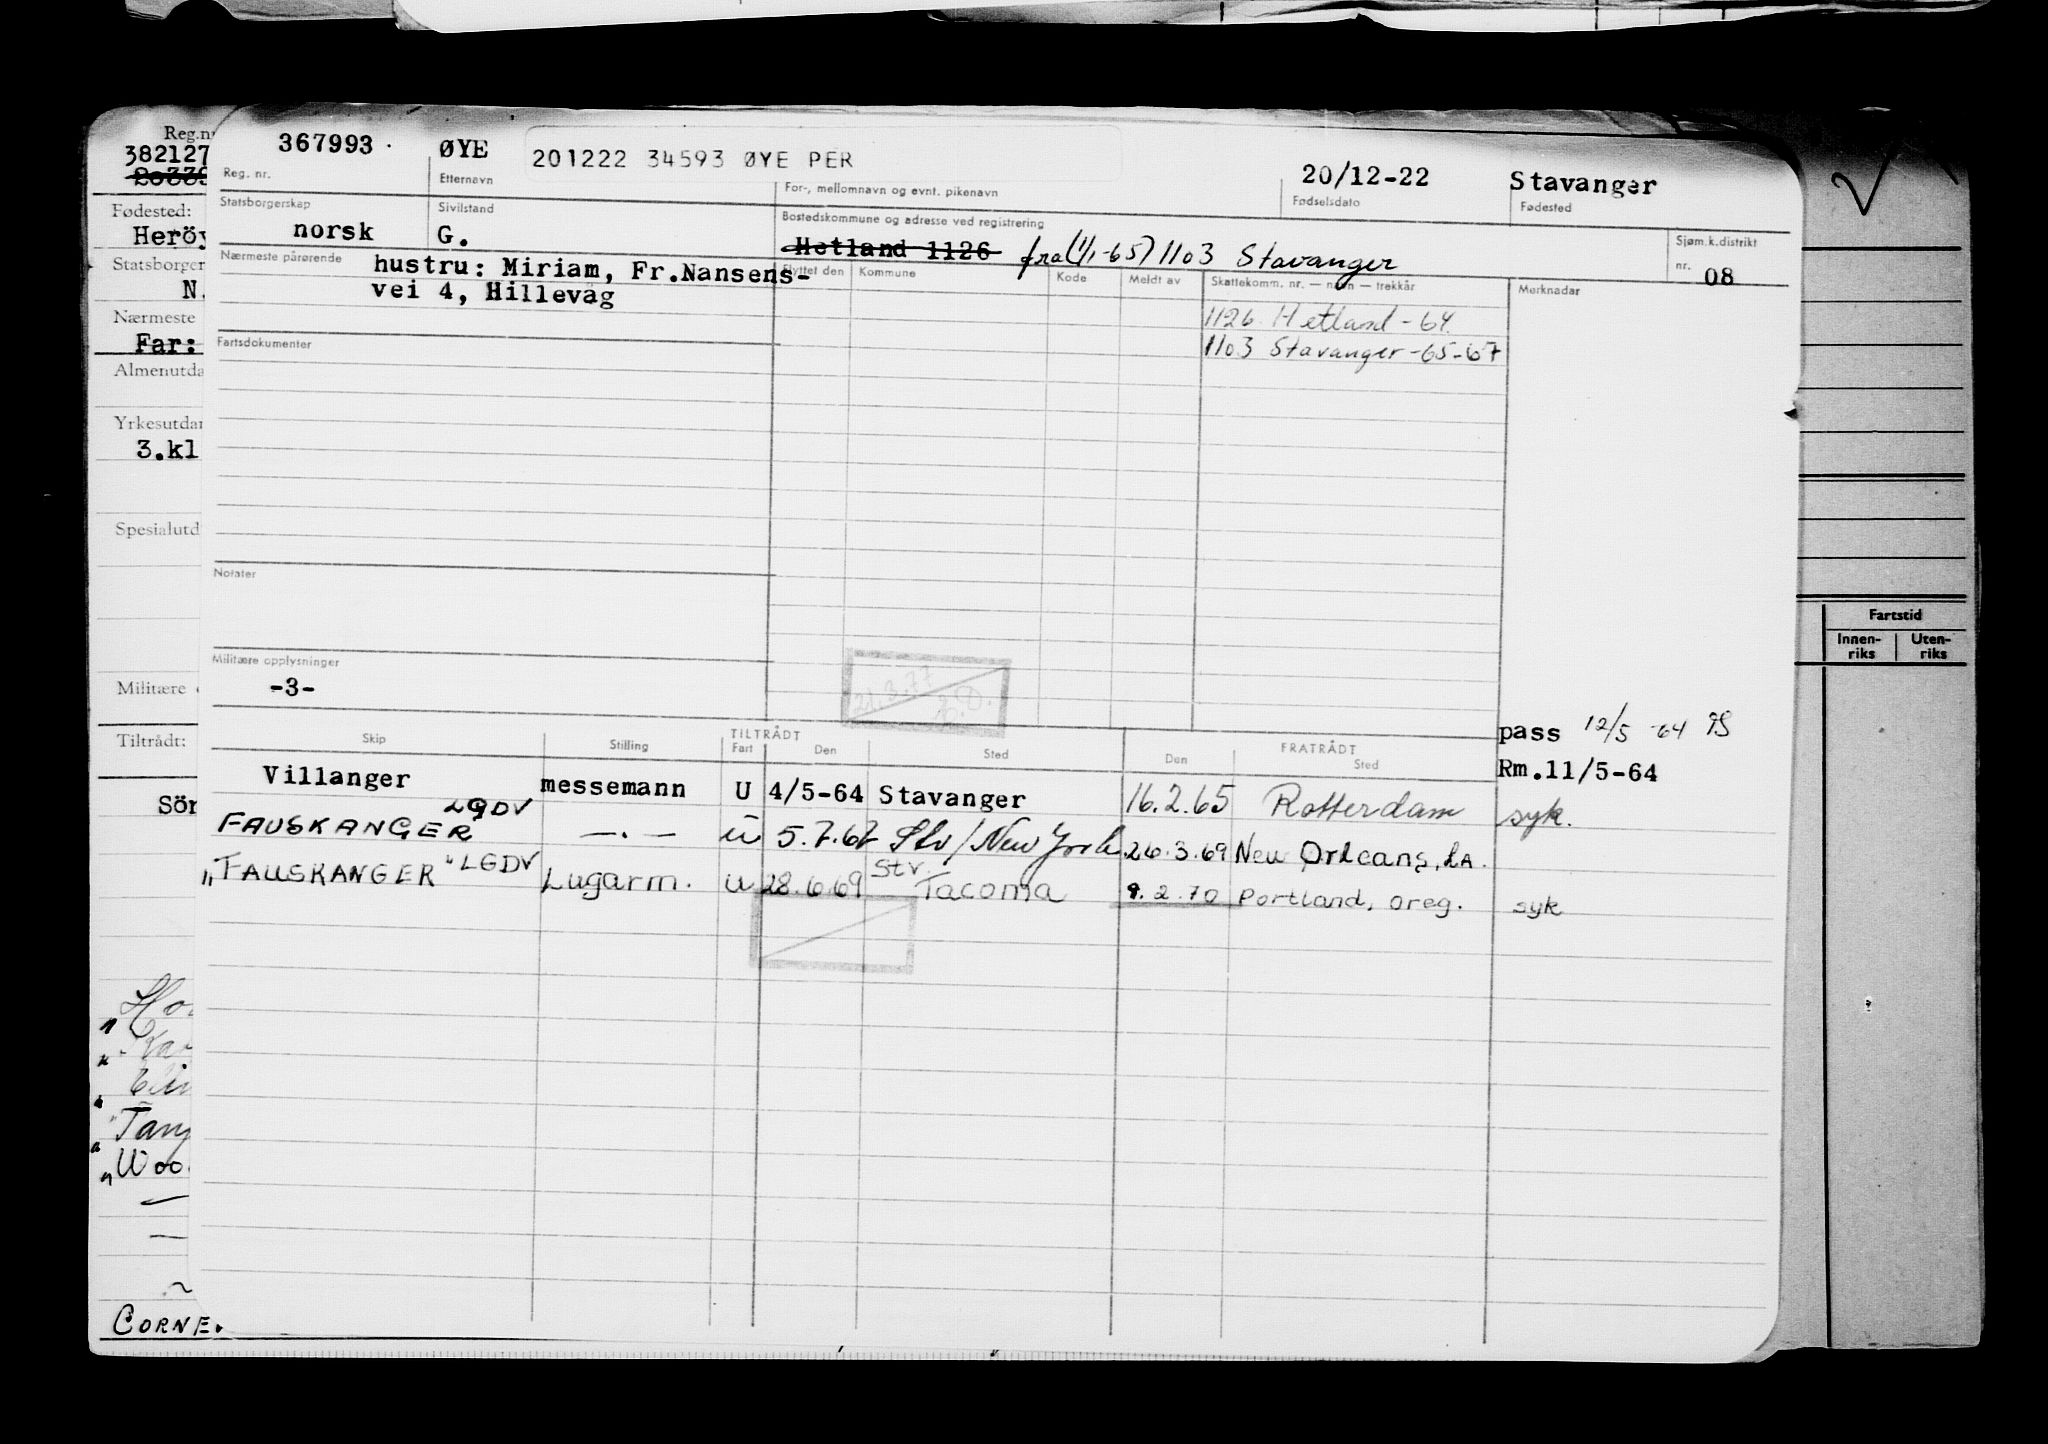 Reg.n
382127
Fødested:
Herøy
Statsborger
N.
Nærmeste
Far:
Almenutda
Yrkesutdan
3.kl
Spesialutd
Militære
Tiltrådt:
Sör
Ho
Kar
Tang
Woo
CORNE
367993 ·
Reg. nr.
ØYE
Etternavn
201222 34593 ØYE PER
For-, mellomnavn og evnt. pikenavn
20/12-22
Fødselsdato
Stavanger
Fødested
Statsborgerskap
norsk
Sivilstand
G.
Bostedskommune og adresse ved registrering
Hetland 1126 fra (1/1-65) 1103 Stavanger
Sjøm.k.distrikt
nr. 08
Nærmeste pårørende
hustru: Miriam, Fr.Nansens-
vei 4, Hillevåg
Flyttet den Kommune Kode Meldt av Skattekomm. nr. — navn — trekkår Merknader
1126 Hetland - 64.
1103 Stavanger -65-67
Fartsdokumenter
Notater
Militære opplysninger
-3-
21.3.77
pass 12/5 -64
Rm.11/5-64
Skip Stilling TILTRÅDT Fart Den Sted FRATRÅDT Den Sted
Villanger messemann U 4/5-64 Stavanger 16.2.65 Rotterdam syk.
FAUSKANGER LGDV —.— U 5.7.67 Stv/New York 26.3.69 New Orleans, LA.
"FAUSKANGER" LGDV Lugarm. U 28.6.69 Stv. Tacoma 9.2.70 Portland, Oreg. syk
Fartstid
Innen-
riks
Uten-
riks